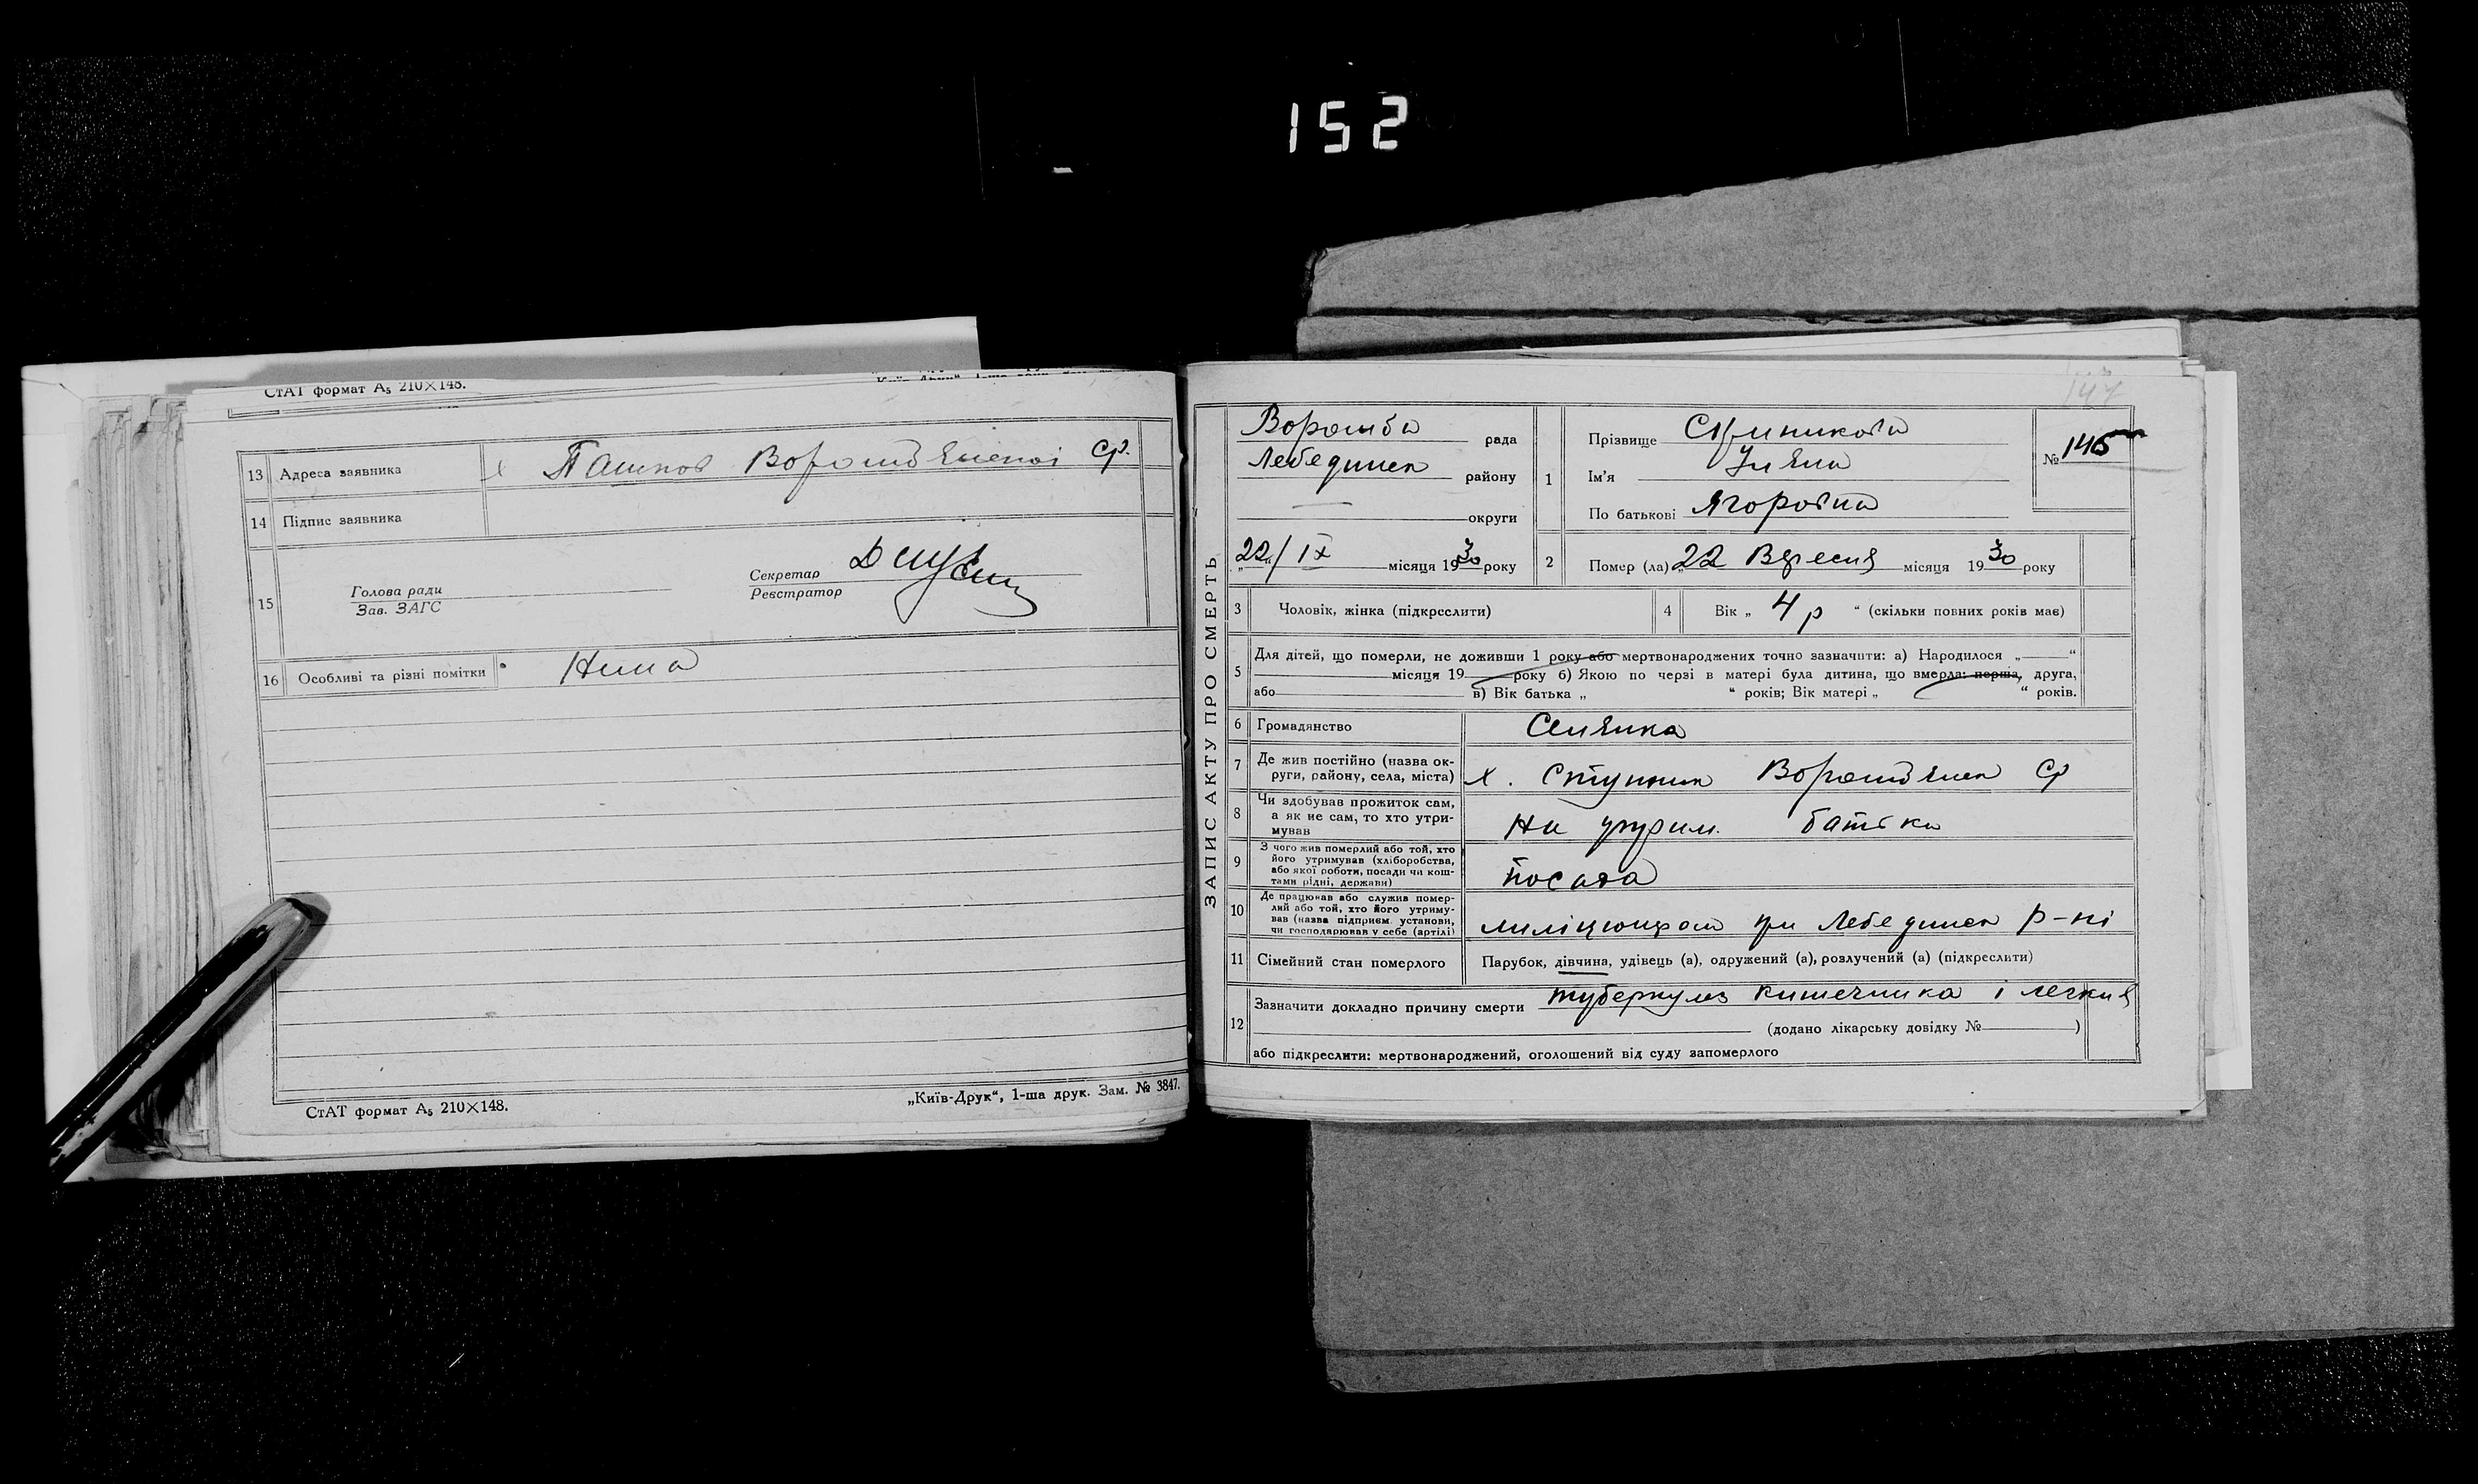 152
СтАТ формат А₅ 210×148.
13 Адреса заявника х Пашков Ворожбянської ср.
14 Підпис заявника
15 Голова ради
Зав. ЗАГС
Секретар
Реєстратор
16 Особливі та різні помітки Нима
СтАТ формат А₅ 210×148.
„Київ-Друк“, 1-ша друк. Зам. № 3847.
147
ЗАПИС АКТУ ПРО СМЕРТЬ
Ворожба рада
Лебединск району
— округи
„22“/ IX місяця 1930 року
1 Прізвище
Ім'я Уляна
По батькові Ягоровна
№ 145
2 Помер (ла) 22 Вересня місяця 1930 року
3 Чоловік, жінка (підкреслити)
4 Вік „ 4 р “ (скільки повних років має)
5 Для дітей, що померли, не доживши 1 року або мертвонароджених точно зазначити: а) Народилося „ “
місяця 19 року б) Якою по черзі в матері була дитина, що вмерла: перша, друга,
або в) Вік батька „ “ років; Вік матері „ “ років.
6 Громадянство Селянка
7 Де жив постійно (назва ок-
руги, району, села, міста) х. Ступки Ворожбянск ср
8 Чи здобував прожиток сам,
а як не сам, то хто утри-
мував На утрим. батька
9 З чого жив померлий або той, хто
його утримував (хліборобства,
або якої роботи, посади чи кош-
тами рідні, держави) посада
10 Де працював або служив помер-
лий або той, хто його утриму-
вав (назва підприєм. установи,
чи господарював у себе (артілі) міліціонером при Лебединск р-ні
11 Сімейний стан померлого Парубок, дівчина, удівець (а), одружений (а), розлучений (а) (підкреслити)
12 Зазначити докладно причину смерти туберкульоз кишечника і легких
(додано лікарську довідку № )
або підкреслити: мертвонароджений, оголошений від суду запомерлого